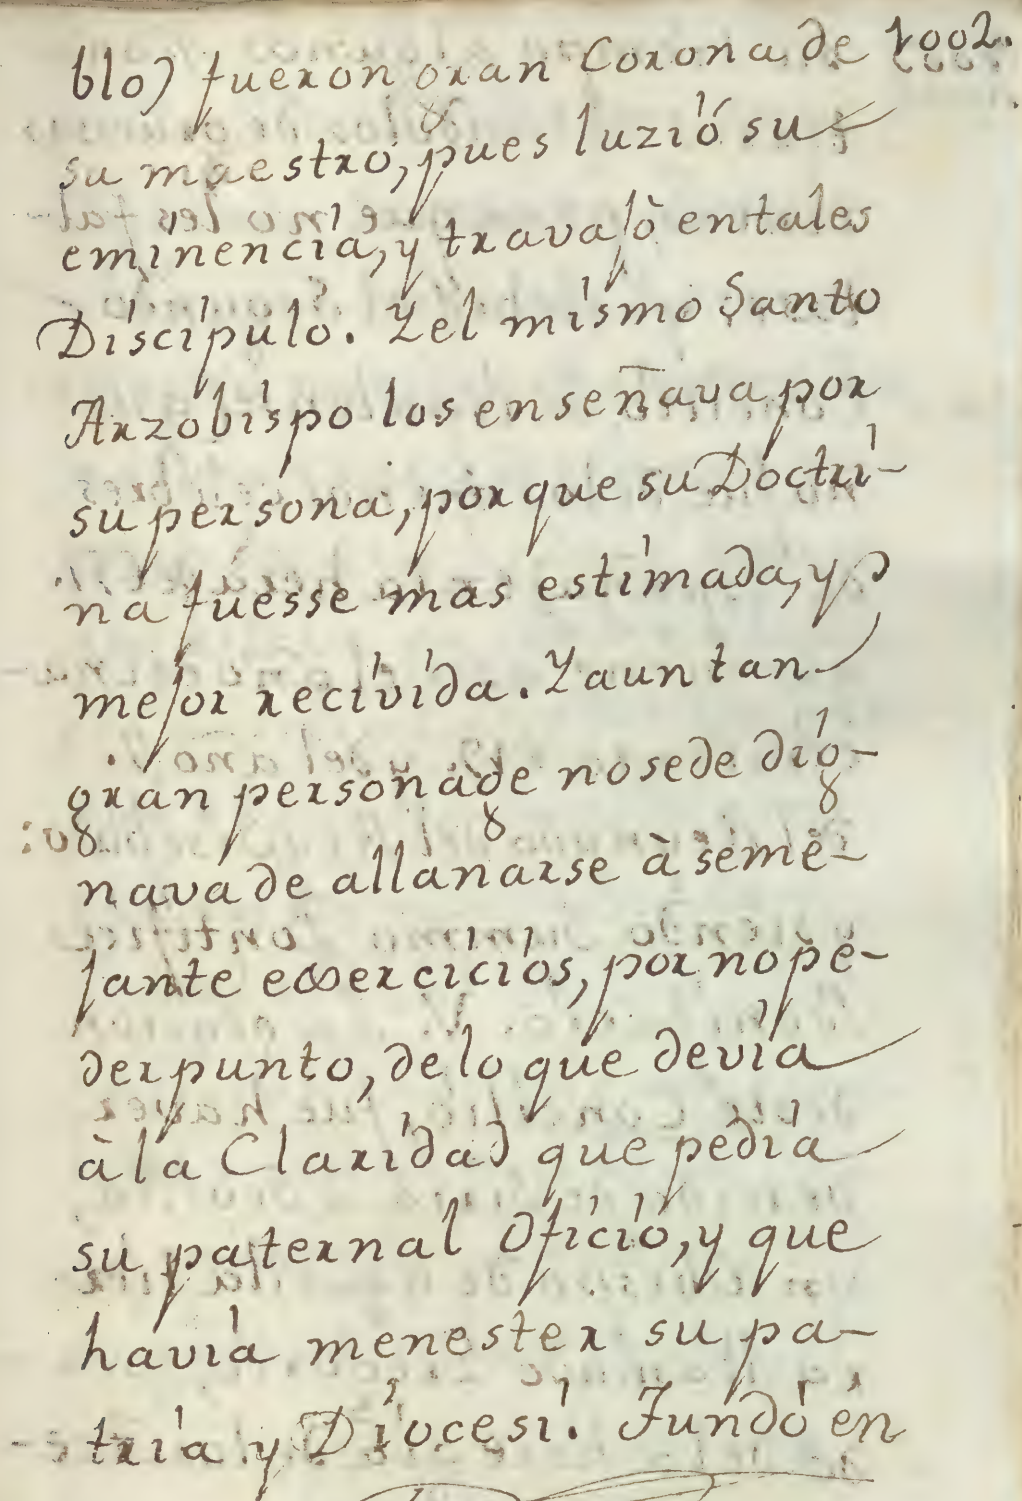 blo) fueron gran Corona de 1002.
su maestro, pues luzió su
eminencia, y travajò entales
Discipulo. Y el mismo Santo
Arzobispo los enseñava por
su persona, porque su Doctri-
na fuesse mas estimada, y
mejor recivida. Y aun tan
gran personage no se de dig-
nava de allanarse à seme-
jante exercicios, por no pe-
der punto, de lo que devia
à la Claridad que pedia
su paternal Oficio, y que
havia menester su pa-
tria y Diocesi. Fundò en